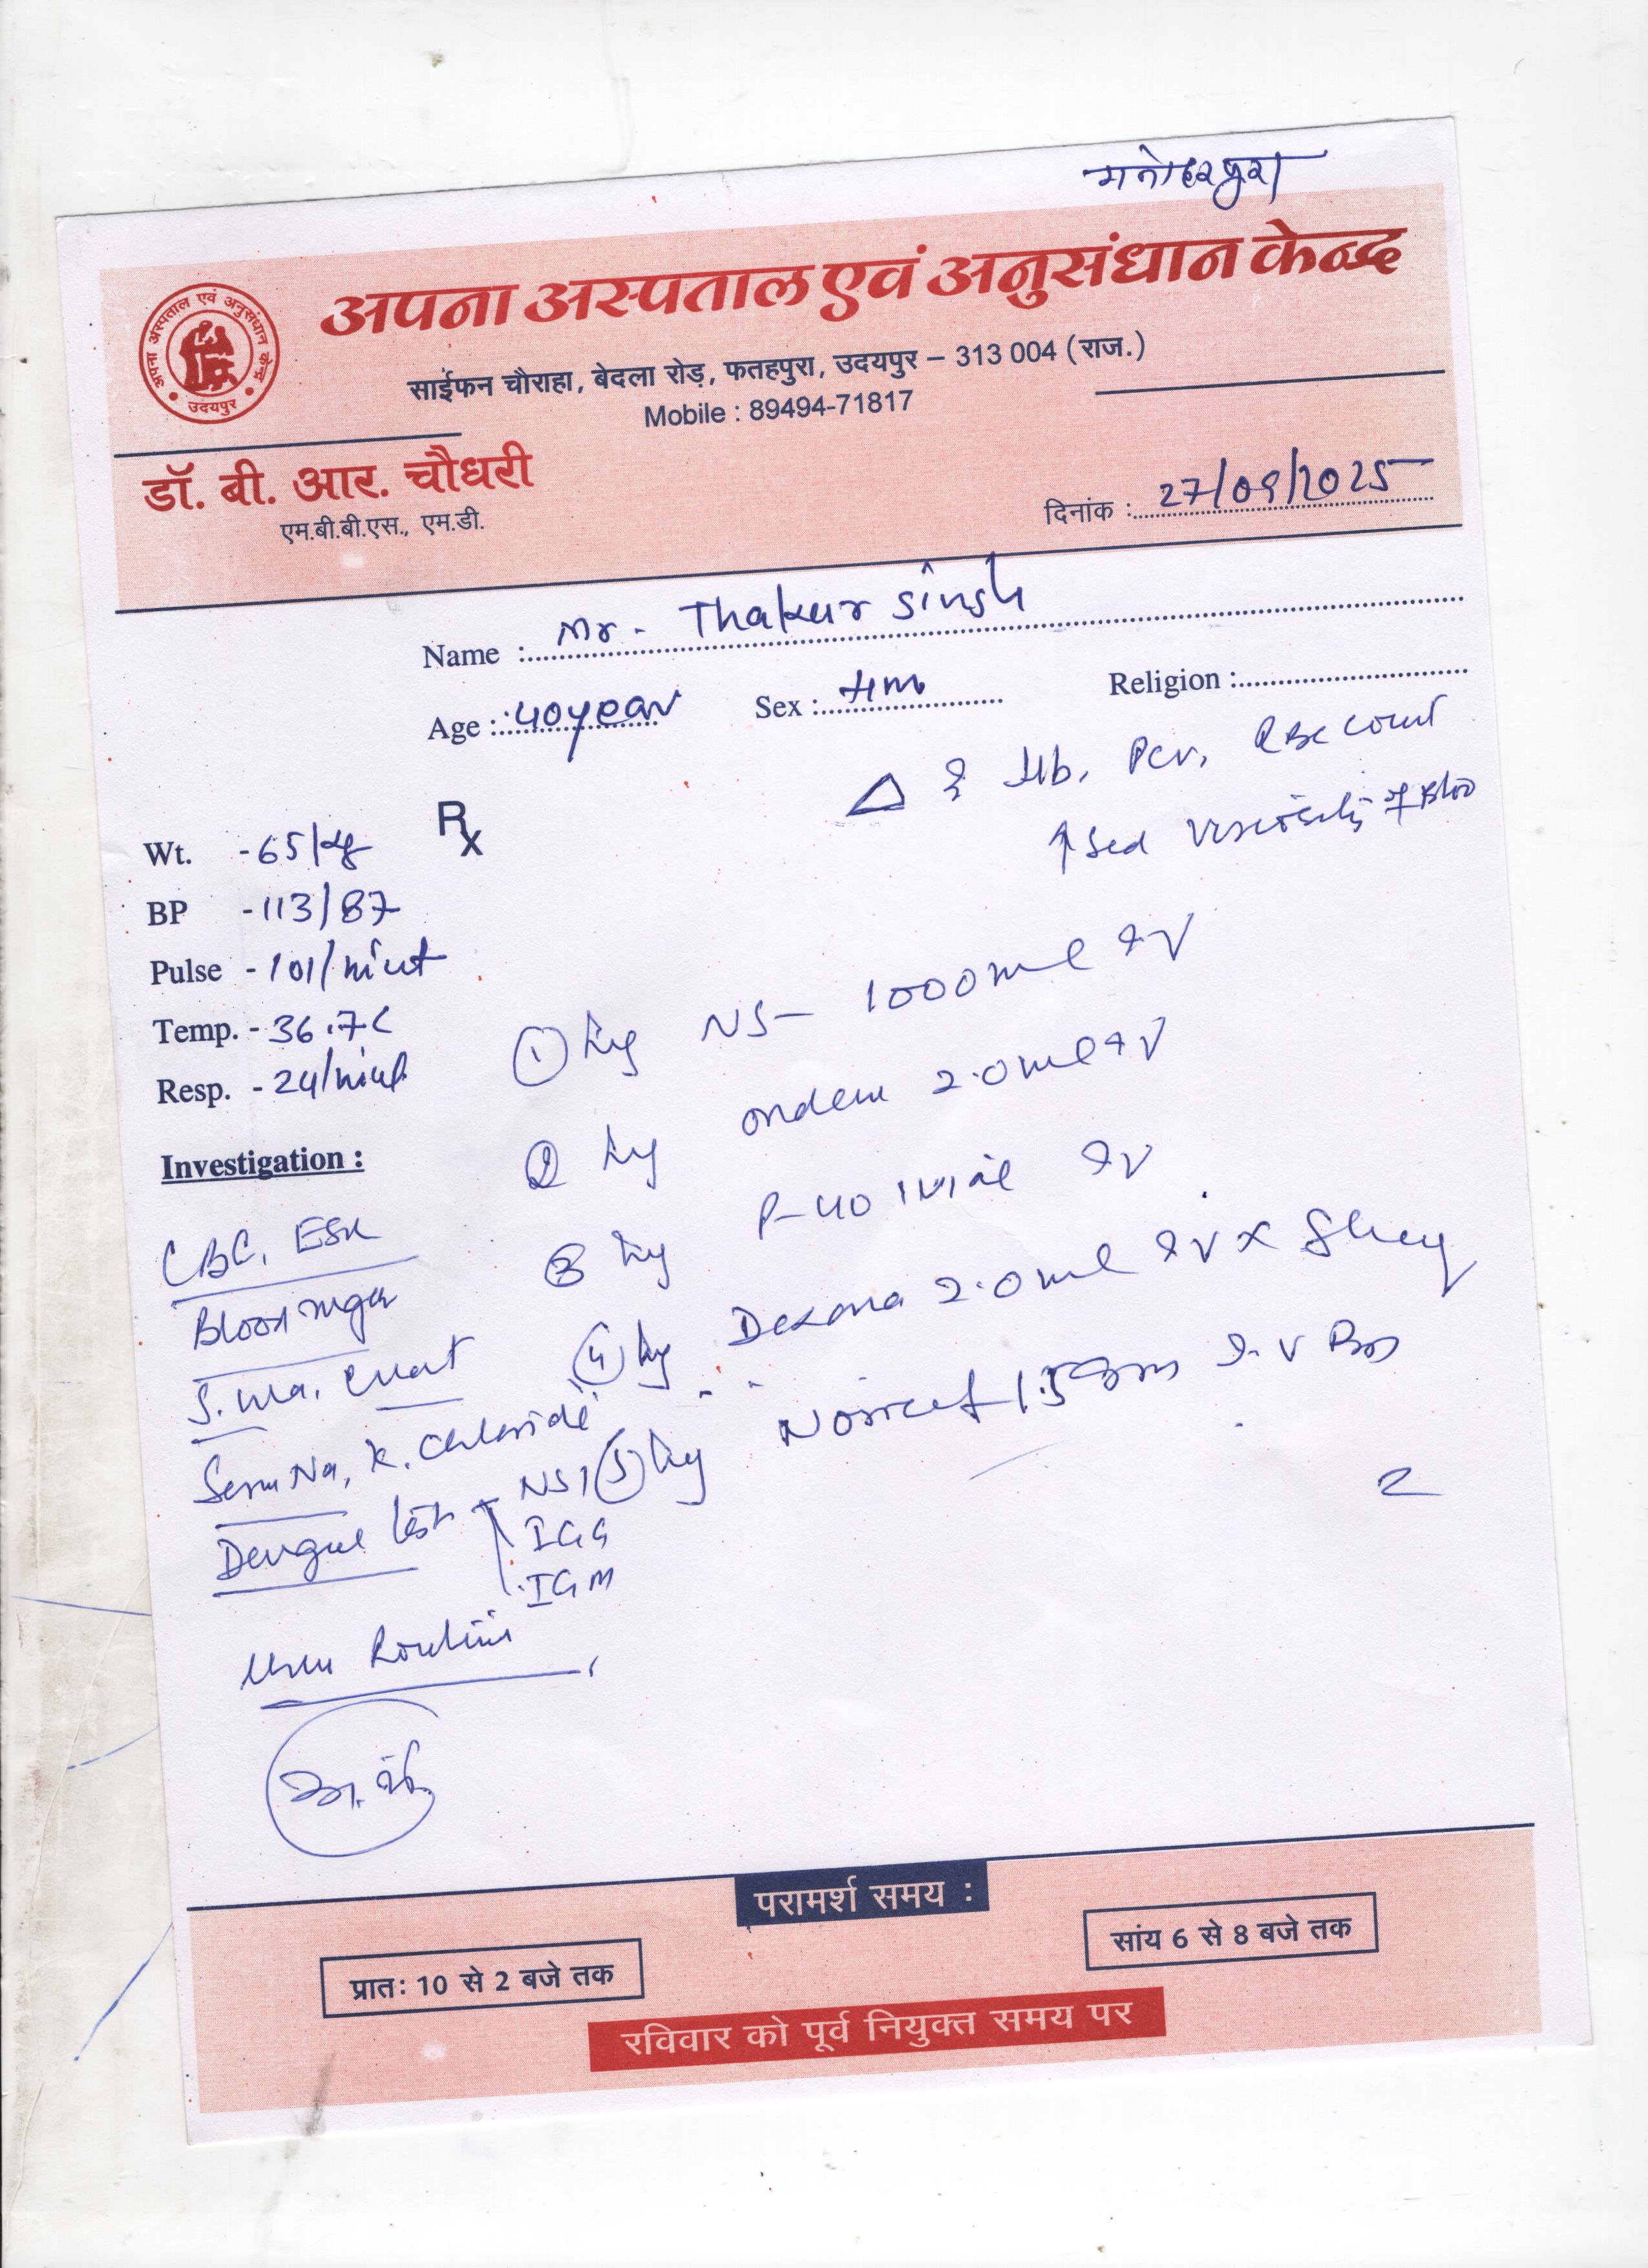 मनोहरपुरा
अपना अस्पताल एवं अनुसंधान केन्द्र
अपना अस्पताल एवं अनुसंधान केन्द्र
उदयपुर
साईफन चौराहा, बेदला रोड़, फतहपुरा, उदयपुर – 313 004 (राज.)
Mobile : 89494-71817
डॉ. बी. आर. चौधरी
एम.बी.बी.एस., एम.डी.
दिनांक : 27/09/2025
Name : Mr. Thakur Singh
Age : 40year Sex : Religion :
Δ Hb, PCV, RBC count
↑sed viscosity of Bloo
Rx
Wt. - 65/kg
BP - 113/87
Pulse - 101/minut
Temp. - 36.7C
Resp. - 24/minut
① Inj NS - 1000ml IV
② Inj ondem 2.0ml IV
③ Inj P-40 1vial IV
④ Inj Dexona 2.0ml IV x
⑤ Inj 1.5gm I.V
2
Investigation :
CBC, ESR
Blood sugar
S. Urea, Creat
Serum Na, K. Chloride
Dengue test NS1
IGG
IGM
Urine Routine
परामर्श समय :
प्रातः 10 से 2 बजे तक
सांय 6 से 8 बजे तक
रविवार को पूर्व नियुक्त समय पर